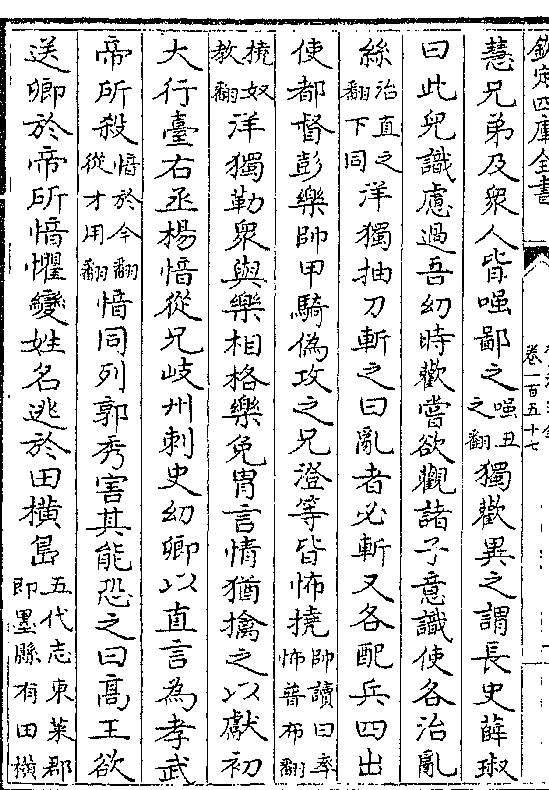 欽定四庫全書
卷一百五十七
慧兄弟及衆人皆嗤鄙之嗤丑之翻獨歡異之謂長史薛琡
曰此兒識慮過吾幼時歡嘗欲觀諸子意識使各治亂
絲治直之翻下同洋獨抽刀斬之曰亂者必斬又各配兵四出
使都督彭樂帥甲騎偽攻之兄澄等皆怖撓帥讀曰率怖普布翻
撓奴教翻洋獨勒衆與樂相格樂免胄言情猶擒之以獻初
大行臺右丞楊愔從兄岐州刺史幼卿以直言為孝武
帝所殺愔於今翻從才用翻愔同列郭秀害其能恐之曰高王欲
送卿於帝所愔懼變姓名逃於田橫島五代志東萊郡即墨縣有田橫